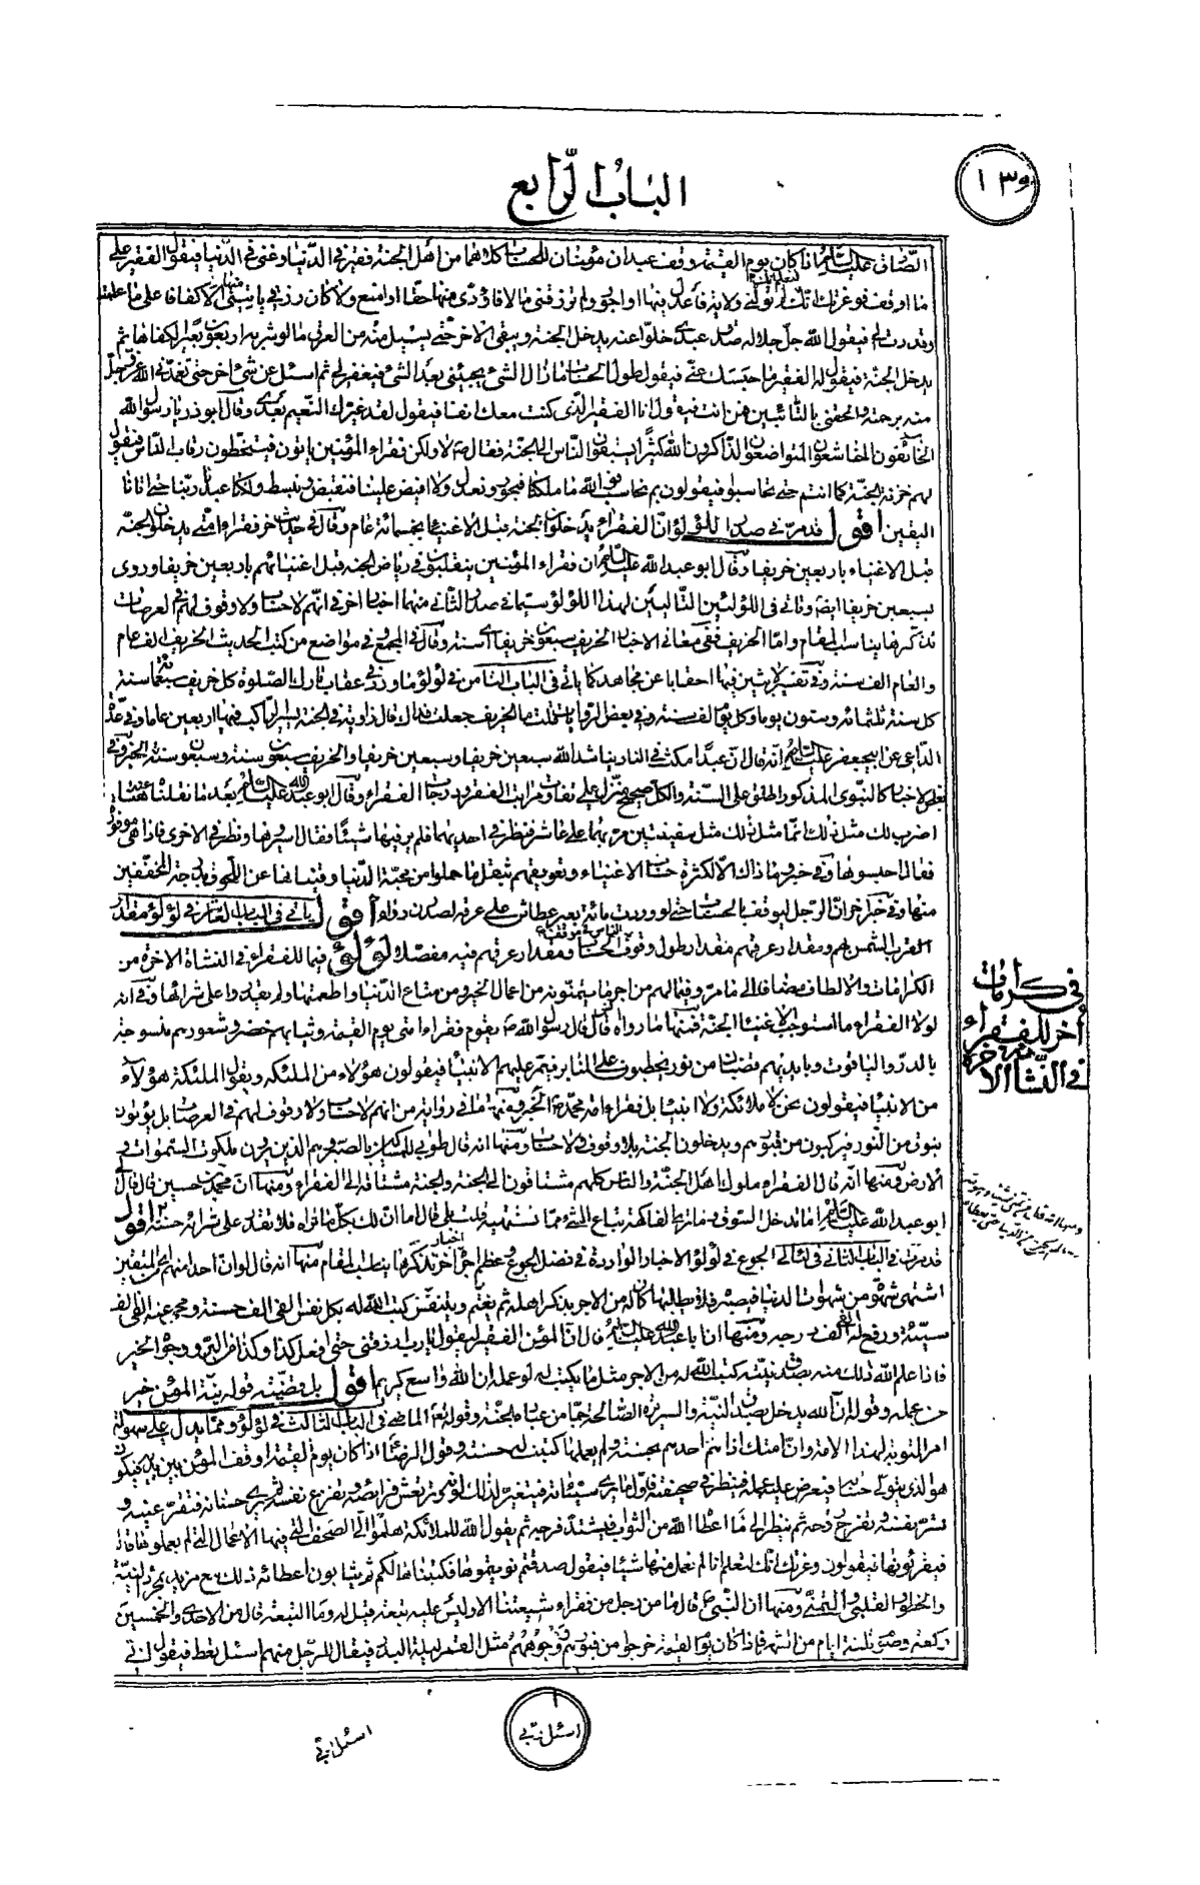 ١٣٩
الباب الرابع
الصادق عليه السلام اذا كان يوم القيمة وقف عبدان مؤمنان للحساب كلاهما من اهل الجنة فقير فى الدنيا وغنى فى الدنيا فيقول الفقير على
ما اوقف فوعزتك انك لتعلم انك لم تولنى ولاية فاعدل فيها او اجور ولم ترزقنى مالا فاؤدى منها حقا او امنع ولا كان رزقى ياتينى منها الا كفافا على ما علمت
وقدرت لى فيقول الله جل جلاله صدق عبدى خلوا عنه يدخل الجنة ويبقى الاخر حتى يسيل منه من العرق ما لو شربه اربعون بعيرا لكفاها ثم
يدخل الجنة فيقول له الفقير ما حبسك عنى فيقول طول الحساب ما زال الشئ يجيئنى بعد الشئ فيغفر لى ثم اسئل عن شئ اخر حتى تغمدنى الله عز وجل
منه برحمته والحقنى بالتائبين فمن انت فيقول انا الفقير الذى كنت معك انفا فيقول لقد غيرك النعيم بعدى وقال ابوذر يا رسول الله
الخائفون الخاشعون المتواضعون الذاكرون الله كثيرا يسبقون الناس الى الجنة فقال ص لا ولكن فقراء المؤمنين ياتون فيتخطون رقاب الناس فيقول
لهم خزنة الجنة كما انتم حتى تحاسبوا فيقولون بم نحاسب فو الله ما ملكنا فنجور ونعدل ولا افيض علينا فنقبض ونبسط ولكنا عبدنا ربنا حتى اتانا
اليقين اقول قد مر فى صدر اللؤلؤ ان الفقراء يدخلون الجنة قبل الاغنياء بخمسمائة عام وقال فى حديث اخر فقراء امتى يدخلون الجنة
قبل الاغنياء باربعين خريفا وقال ابو عبد الله عليه السلام ان فقراء المؤمنين يتقلبون فى رياض الجنة قبل اغنيائهم باربعين خريفا وروى
بسبعين خريفا ايضا وتاتى فى اللؤلئين التاليين لهذا اللؤلؤ سيما فى صدر الثانى منهما اخبار اخر فى انهم لا حساب ولا وقوف لهم فى العرصات
تذكرها يناسب المقام واما الخريف ففى معانى الاخبار الخريف سبعون خريفا اى سنة وقال فى المجمع فى مواضع من كتب الحديث الخريف الف عام
والعام الف سنة وفى تفسير لابثين فيها احقابا عن مجاهد كما ياتى فى الباب الثامن فى لؤلؤ ما ورد فى عقاب تارك الصلوة كل خريف سبعمائة سنة
كل سنة ثلثمائة وستون يوما وكل يوم الف سنة وفى بعض الروايات قلت ما الخريف جعلت فداك قال زاوية فى الجنة يسير الراكب فيها اربعين عاما وفى عدة
الداعى عن ابى جعفر عليه السلام انه قال ان عبدا مكث فى النار يناشد الله سبعين خريفا وسبعين خريفا والخريف سبعون سنة وسبعون سنة
اضرب لك مثل ذلك انما مثل ذلك مثل سفينتين مر بهما على عاشر فنظر فى احديهما فلم ير فيها شيئا فقال اسربوها ونظر فى الاخرى فاذا هى موقرة
فقال احبسوها وفى خبر وما ذاك الا لكثرة حساب الاغنياء وتعويقهم بثقل ما حملوا من محبة الدنيا
منها وفى خبر اخر ان الرجل ليوقف بالحساب حتى لو وردت مائة بعير عطاش على عرقه لصدرن رواء اقول ياتى فى الباب العاشر فى لؤلؤ مقدار
القرب الشمس بهم ومقدار عرقهم مقدار طول وقوف الناس فى موقف الحساب ومقدار عرقهم فيه مفصلا لؤلؤ فيما للفقراء فى النشاة الاخرة من
الكرامات والالطاف مضافا الى ما مر وفيما لهم من اجر ما يتمنونه من اعمال الخير ومن متاع الدنيا واطعمتها ولم يقدروا على شرائها وفى انه
لولا الفقراء ما استوجب الاغنياء الجنة فمنها ما رواه قال قال رسول الله ص يقوم فقراء امتى يوم القيمة وثيابهم خضر وشعورهم منسوجة
بالدر والياقوت وبايديهم قضبان من نور يخطبون على المنابر فيمر عليهم الانبياء فيقولون هؤلاء من الملئكة ويقول الملئكة هؤلاء
من الانبياء فيقولون نحن لا ملائكة ولا انبياء بل فقراء امة محمد ص الخبر ومنها ما فى رواية من انهم لا حساب ولا وقوف لهم فى العرصات بل يؤتون
بنوق من النور فيركبون من قبورهم ويدخلون الجنة بلا وقوف ولا حساب ومنها انه قال طوبى للمساكين بالصبر وهم الذين يرون ملكوت السموات و
الارض ومنها انه قال الفقراء ملوك اهل الجنة والناس كلهم مشتاقون الى الجنة والجنة مشتاقة الى الفقراء ومنها ان محمد بن حسين قال قال
ابو عبد الله عليه السلام اما تدخل السوق فما ترى الفاكهة تباع والشئ مما تشتهيه قلت بلى قال اما ان لك بكل ما تراه فلا تقدر على شرائه حسنة اقول
قد مرت فى الباب الثانى فى لئالى الجوع فى لؤلؤ الاخبار الواردة فى فضل الجوع وعظم اجره اخبار اخر تذكرها يناسب المقام منها انه قال لو ان احدا منهم
اشتهى شهوة من شهوات الدنيا فيصبر فلا يطلبها كان له من الاجر بذكر اهله ثم يغتم ويتنفس كتب الله له بكل نفس الفى الف حسنة ومحى عنه الفى الف
سيئة ورفع له الفى الف درجة ومنها ان ابا عبد الله عليه السلام قال ان المؤمن الفقير ليقول يا رب ارزقنى حتى افعل كذا وكذا من البر ووجوه الخير
فاذا علم الله ذلك منه بصدق نيته كتب الله له من الاجر مثل ما يكتب له لو عمله ان الله واسع كريم اقول بل قضيته قوله نية المؤمن خير
من عمله وقوله ان الله يدخل بصدق النية والسريرة الصالحة من يشاء من عباده الجنة وقوله الماضى فى الباب الثالث فى لؤلؤ ومما يدل على سهولة
امر التوبة لهذه الامة وان امتك اذا هم احدهم بحسنة ولم يعملها كتبت له حسنة وقول الرضا اذا كان يوم القيمة اوقف المؤمن بين يديه فيكون
هو الذى يتولى حسابه فيعرض عليه عمله فينظر فى صحيفته فاول ما يرى سيئاته فيتغير لذلك لونه وترتعش فرايصه وتفزع نفسه ثم يرى حسناته فتقر عينه و
تسر نفسه وتفرح روحه ثم ينظر الى ما اعطاه الله من الثواب فيشتد فرحه ثم يقول الله للملائكة هلموا الى الصحف التى فيها الاعمال التى لم يعملوها قال
فيقرؤنها فيقولون وعزتك انك لتعلم انا لم نعمل منها شيئا فيقول صدقتم نويتموها فكتبناها لكم ثم يثابون اعطائه ذلك مع مزيد بمجرد النية
والخطور القلبى والتمنى ومنها ان النبى ص قال ما من رجل من فقراء شيعتنا الا وليس عليه تبعة قيل له وما التبعة قال من الاحدى والخمسين
ركعة وصوم ثلثة ايام من الشهر فاذا كان يوم القيمة خرجوا من قبورهم وجوههم مثل القمر ليلة البدر فيقال للرجل منهم اسئل تعط فيقول انى
فى كرامات
اخر للفقراء
فى النشاة الاخرة
اسئل ربى
اسئل ربى